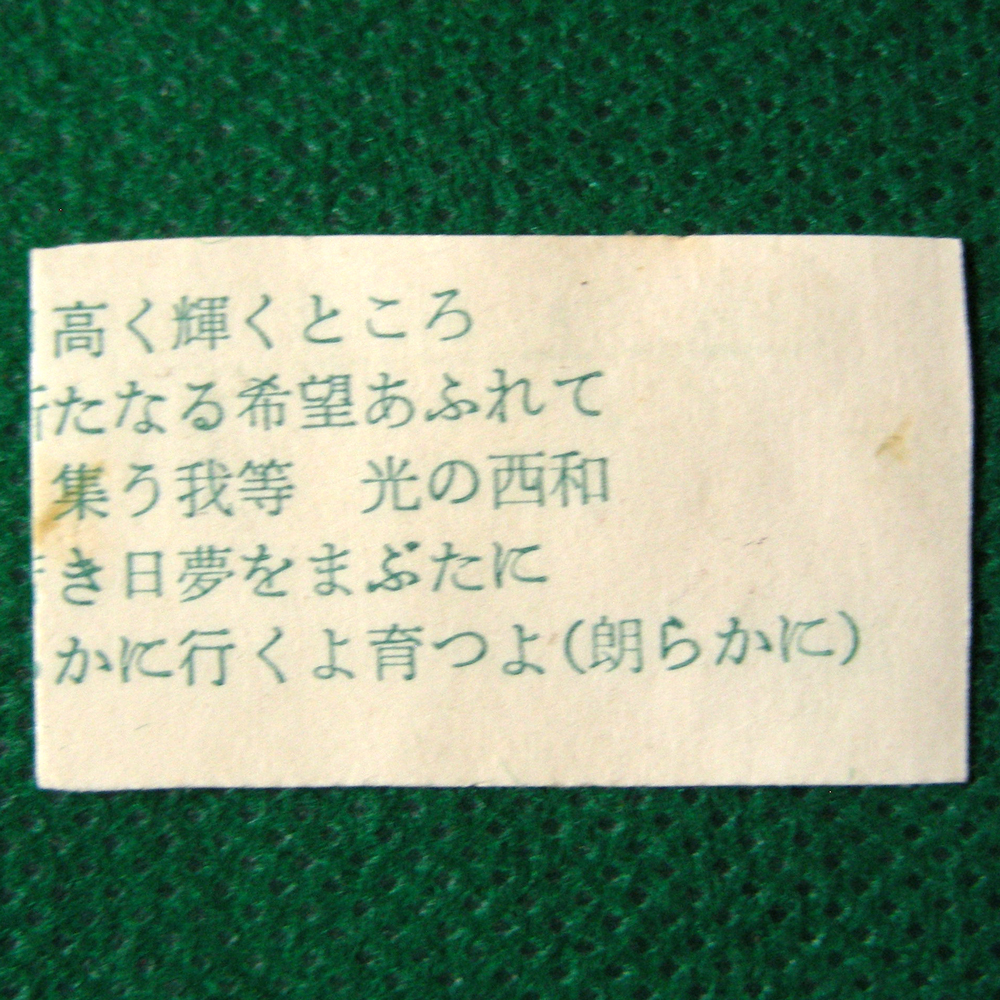 高く輝くところ
たなる希望あふれて
集う我等　光の西和
き日夢をまぶたに
かに行くよ育つよ(朗らかに)